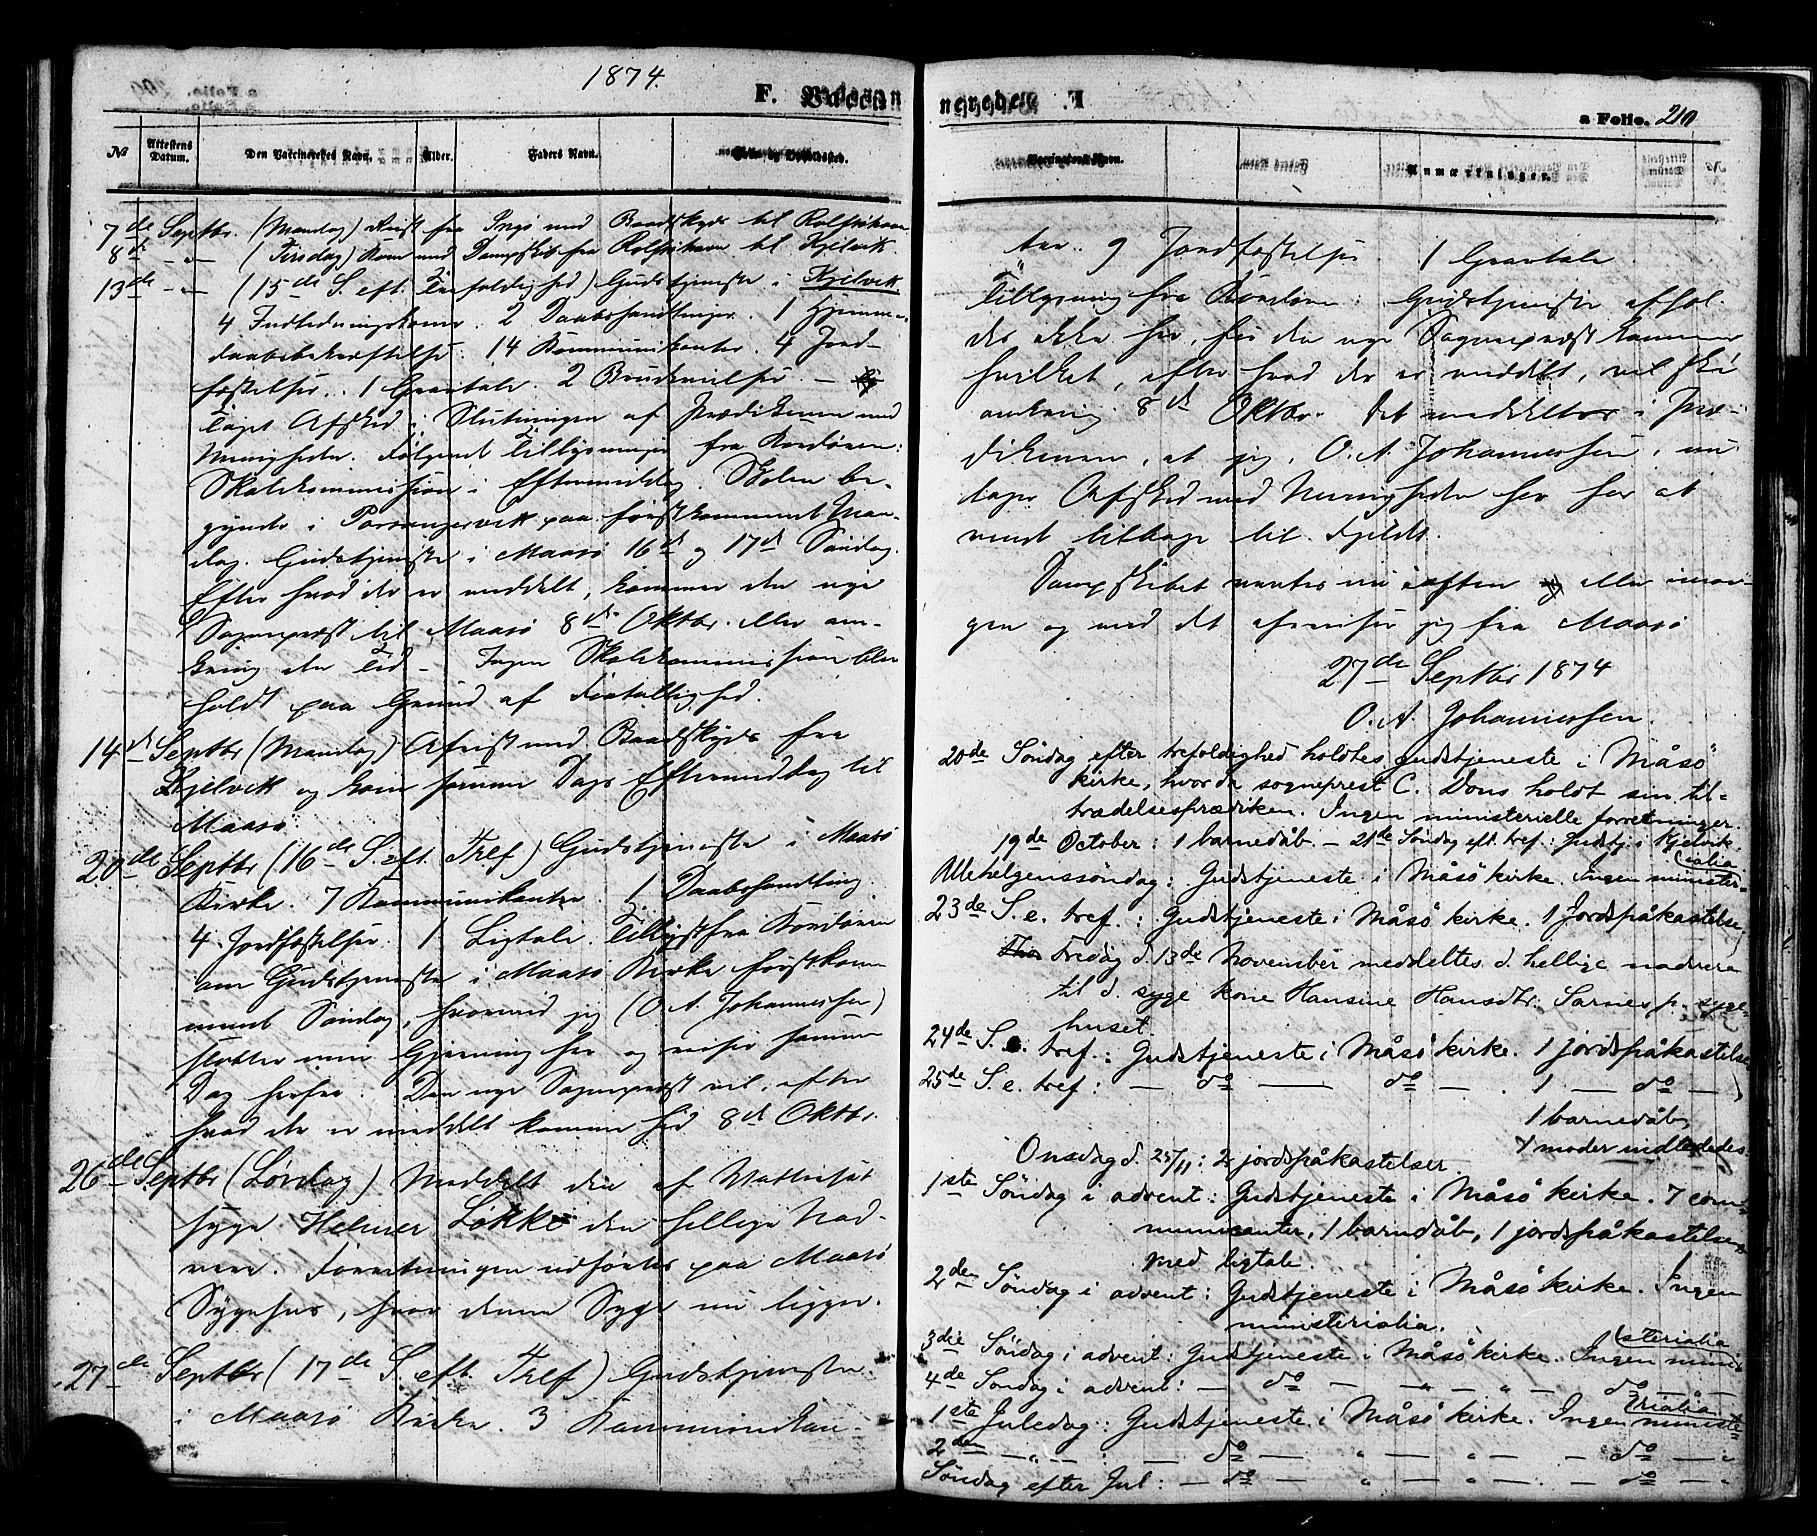 1874.
F. Vaccin
nerede. F.
a Folio. 210
№ Attestens Datum. Den Vaccineredes Navn. Alder. Faders Navn.
Anmærkninger.
7de Septbr. (Mandag) Reist fra Ingö med Baadskyds til Rolfsöhavn
8de - " - (Tirsdag) Kom med Dampskib fra Rolfsöhavn til Kjelvik.
13de - " - (15de S. eft. Trefoldighed) Gudstjeneste i Kjelvik
4 Indledningskoner. 2 Daabshandlinger. 1 Hjemme-
daabsbekræftelse. 14 Kommunikanter. 4 Jord-
fæstelser. 1 Gravtale. 2 Brudevielser. -
Taget Afsked i Slutningen af Prædikenen med
Menigheden. Følgende Tillysninger fra Kordören:
Skolekommission i Eftermiddag. Skolen be-
gynder i Porsangervik paa førstkommende Man-
dag. Gudstjeneste i Maasö 16de og 17de Søndag.
Efter hvad der er meddelt, kommer den nye
Sogneprest til Maasö 8de Oktbr. eller om-
kring den Tid - Ingen Skolekommission blev
holdt paa Grund af Faatallighed.
14de Septbr (Mandag) Afreist med Baadskyds fra
Kjelvik og kom samme Dags Eftermiddag til
Maasö.
20de Septbr (16de S. eft. Tref) Gudstjeneste i Maasö
Kirke. 7 Kommunikanter. 1 Daabshandling.
4 Jordfæstelser. 1 Ligtale. Tillyst fra Kordören
om Gudstjeneste i Maasö Kirke førstkom-
mende Søndag, hvormed jeg (O. A. Johannessen)
slutter min Gjerning her og reiser samme
Dag herfra. Den nye Sogneprest vil, efter
hvad der er meddelt komme hid 8de Oktbr.
26de Septbr (Lørdag) Meddelt den af
syge Helmer Løkke den hellige Nad-
vere. Forretningen udførtes paa Maasö
Sygehus, hvor denne Syge nu ligger.
27de Septbr (17de S. eft. Tref) Gudstjeneste
i Maasö Kirke. 3 Kommunikan-
ter. 9 Jordfæstelser. 1 Gravtale.
Tillysning fra Kordören: Gudstjeneste afhol-
des ikke her, før den nye Sogneprest kommer
hvilket, efter hvad der er meddelt, vil ske
omkring 8de Oktbr. Det meddeltes i Præ-
dikenen, at jeg, O. A. Johannessen, nu
tager Afsked med Menigheden her for at
vende tilbage til Fjeldet.
Dampskibet ventes nu iaften eller imor-
gen og med det afreiser jeg fra Maasö
27de Septbr 1874
O. A. Johannessen.
20de Søndag efter trefoldighed holdtes gudstjeneste i Måsö
kirke, hvor da sogneprest C. Dons holdt sin til-
trædelsesprædiken. Ingen ministerielle forretninger.
19de October: 1 barnedåb. - 21de Søndag eft. tref: Gudstj. i Kjelvik.
Allehelgenssöndag: Gudstjeneste i Måsö kirke. Ingen minister-
ialia
23de S. e. tref.: Gudstjeneste i Måsö kirke. 1 Jordspåkastelse
Fredag d. 13de November meddeltes d. hellige nadvere
til d. syge kone Hansine Hansdtr. Sarnes p. syge-
huset.
24de S. e. tref.: Gudstjeneste i Måsö kirke. 1 jordspåkastelse
25de S. e. tref: - do - do - . 1 - do -
1 barnedåb,
1 moder indledes
Onsdag d. 25/11: 2 jordspåkastelser.
1ste Söndag i advent: Gudstjeneste i Måsö kirke. 7 com-
municanter, 1 barndåb, 1 jordspåkastelse
med ligtale.
2den Søndag i advent: Gudstjeneste i Måsö kirke. Ingen
ministerialia.
3die Søndag i advent: Gudstjeneste i Måsö kirke. Ingen mini-
sterialia
4de Søndag i advent: - do - " - " - do - -
1ste Juledag: Gudstjeneste i Måsö kirke. Ingen ministe-
rialia
2den - " - : - do - " - " - - do - "
Søndag efter Jul: - do - " - " - - do - "